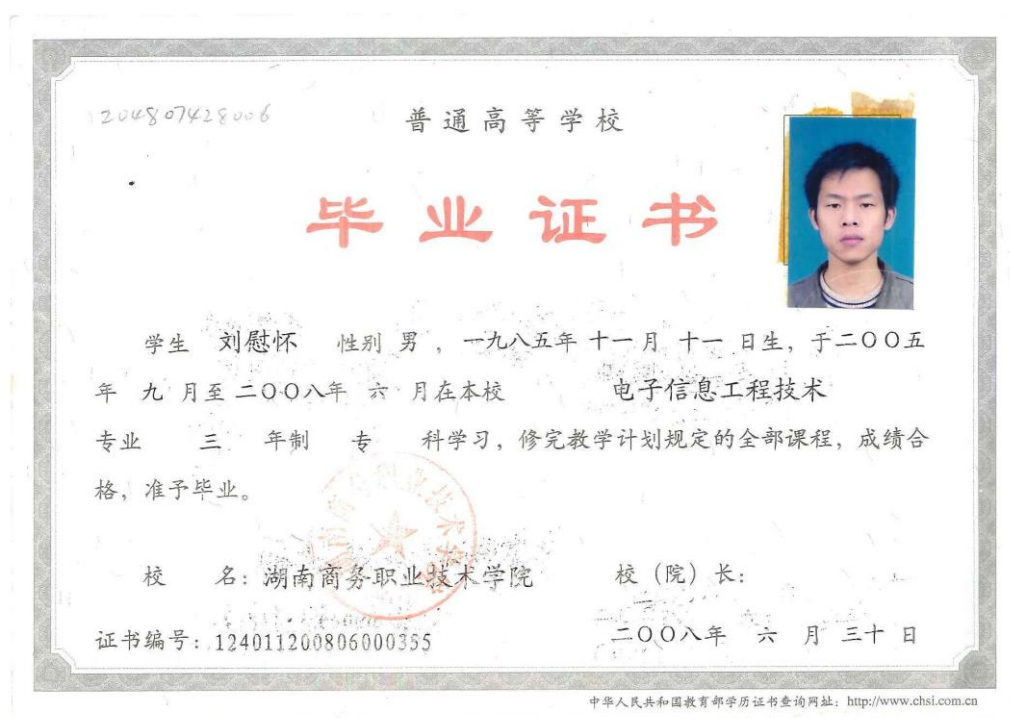 1204807428006
普通高等学校
毕业证书
学生 刘慰怀 性别 男 ，一九八五年 十一 月 十一 日生，于二〇〇五
年 九 月至 二〇〇八年 六 月在本校 电子信息工程技术
专业 三 年制 专 科学习，修完教学计划规定的全部课程，成绩合
格，准予毕业。
校 名：湖南商务职业技术学院 校（院）长：
证书编号：124011200806000355 二〇〇八年 六 月 三十 日
中华人民共和国教育部学历证书查询网址：http://www.chsi.com.cn